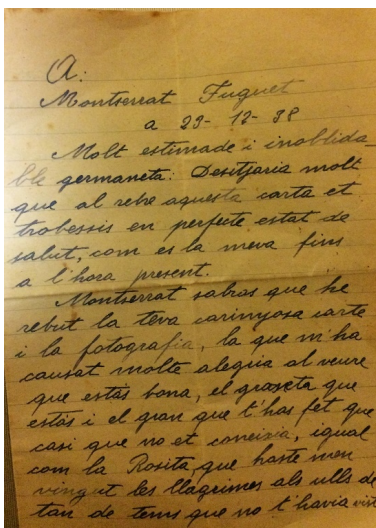 A:
Montserrat Fuguet
a 29-12-38
Molt estimade i inoblida_
ble germaneta: Desitjaria molt
que al rebre aquesta carta et
trobessis en perfecte estat de
salut, com es la meva fins
a l'hora present.
Montserrat sabras que he
rebut la teva carinyosa carte
i la fotografia, la que m'ha
causat molte alegria al veure
que estàs bona, el graseta que
estàs i el gran que t'has fet que
casi que no et coneixia, igual
com la Rosita, que haste men
vingut les llagrimes als ulls de
tan de tems que no t'havia vist